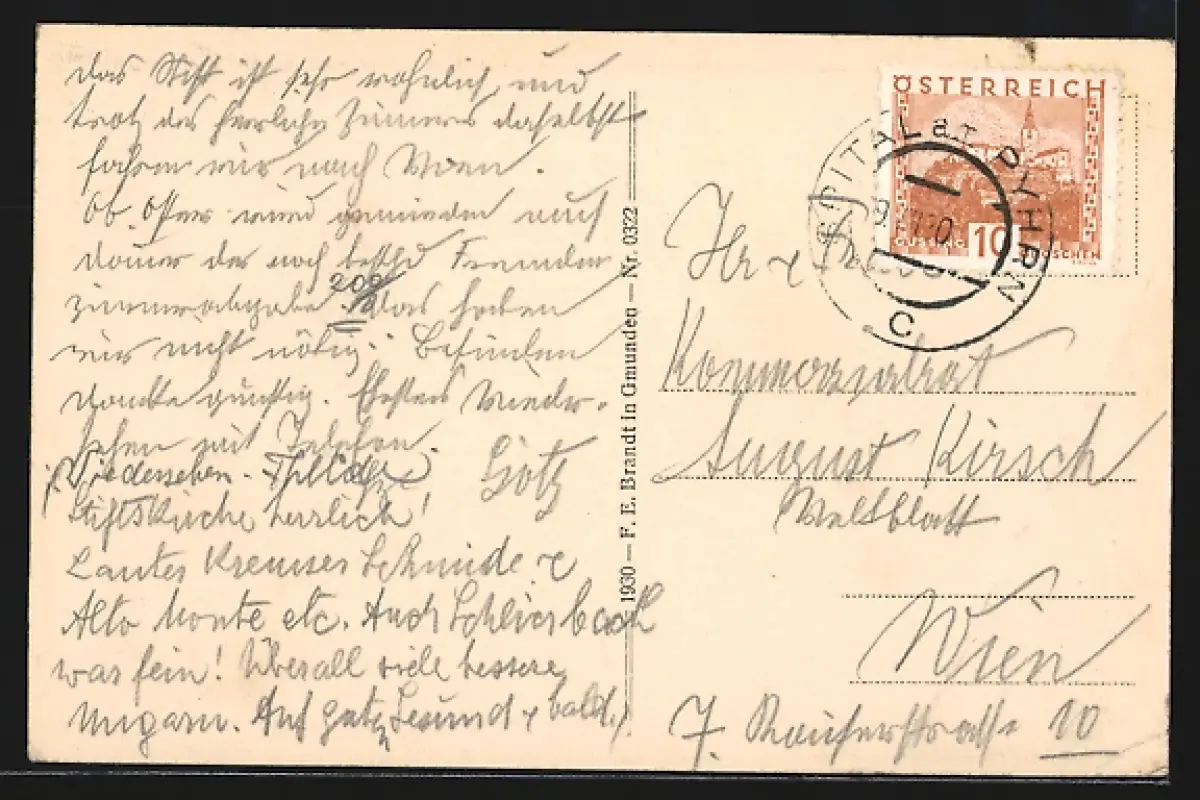 das Stift ist sehr wohnlich und
trotz des herrlichen Zimmers daselbst
fahren wir nach Wien.
Ob Ofen wird gemieden auf
dauer der noch
Fremden
zimmerabgabe 20% das haben
wir nicht nötig. Befinden
danke günstig. Wieder-
sehen mit Telefon.
Wiedersehen. Götz
Stiftskirche herrlich!
Lauter Kremser Schmidt &
Alto Monte etc. Auch Schlierbach
was fein! Überall viele bessere
Ungarn. Auf gutes Gesund & bald.
1930 — F. E. Brandt in Gmunden — Nr. 0322
ÖSTERREICH
GÜSSING 10 GROSCHEN
SPITAL a. PYHRN
C
Kommerzialrat
August Kirsch
Weltblatt
Wien
7. Kaiserstrasse 10